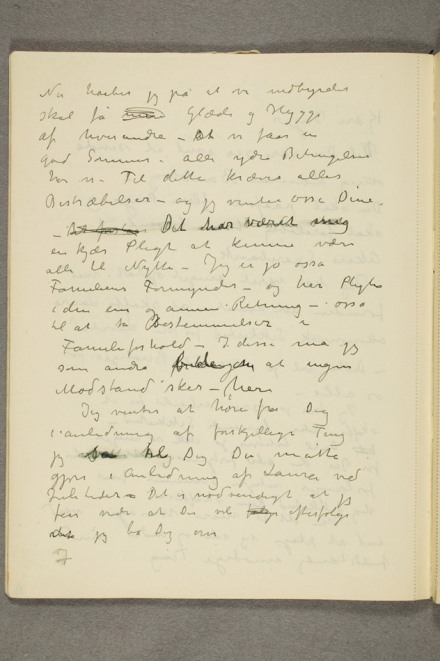 Nu haaber jeg på at vi indbyrdes
skal få Glæde og Hygge
af hverandre – At vi faar en
god Sommer – alle ydre Betingelser
har vi – Til dette kræves alles
Bestræbelser – og jeg venter ossa Dine –
– Det har været mig
en kjær Pligt at kunne være
alle til Nytte – Jeg er jo ossa
Familiens Formynder – og har Pligter
i den ene og annen Retning – ossa
til at ta Bestemmelser i
Familieforhold – I disse må jeg
som andre at ingen
Modstand sker – (her
Jeg venter at höre fra Dig
i anledning af forskjellige Ting
jeg Dig Du måtte
gjøre i Anledning af Laura ved
Det er nødvendigt at jeg
faar vide at Du vil efterfølge
jeg bad Dig om